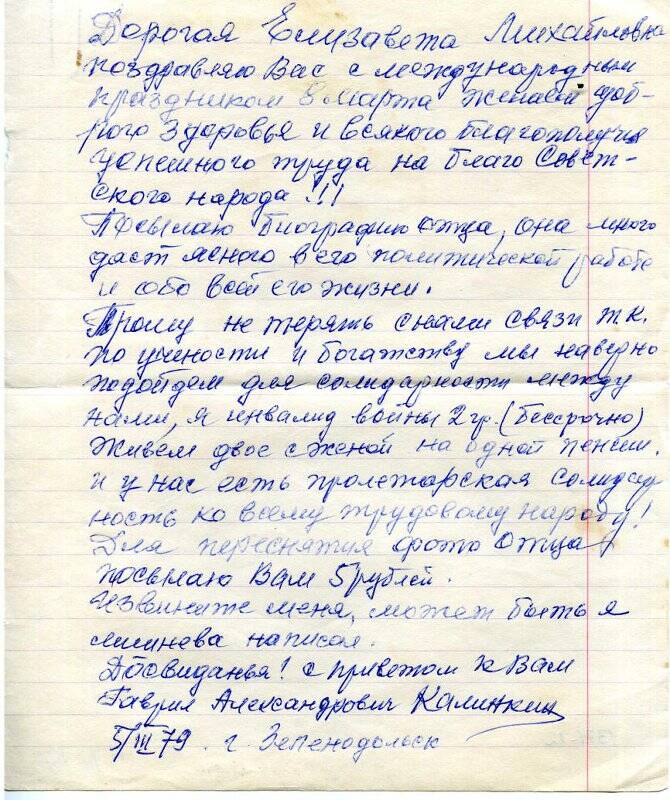 Дорогая Елизавета Михайловна
поздравляю Вас с международным
праздником 8 марта желаю доб-
рого здоровья и всякого благополучия
успешного труда на благо Совет-
ского народа!!!
Посылаю биографию отца, она много
даст ясного в его политической работе
и обо всей его жизни.
Прошу не терять с нами связи т.к.
по учености и богатству мы наверно
подойдем для солидарности между
нами, я инвалид войны 2 гр. (бессрочно)
Живём двое с женой на одной пенсии.
и у нас есть пролетарская солидар
ность ко всему трудовому народу!
Для переснятия фото Отца
посылаю Вам 5 рублей.
Извините меня, может быть я
лишнева написал.
Досвиданья! с приветом к Вам
Гаврил Александрович Калинкин
5/III 79. г. Зеленодольск